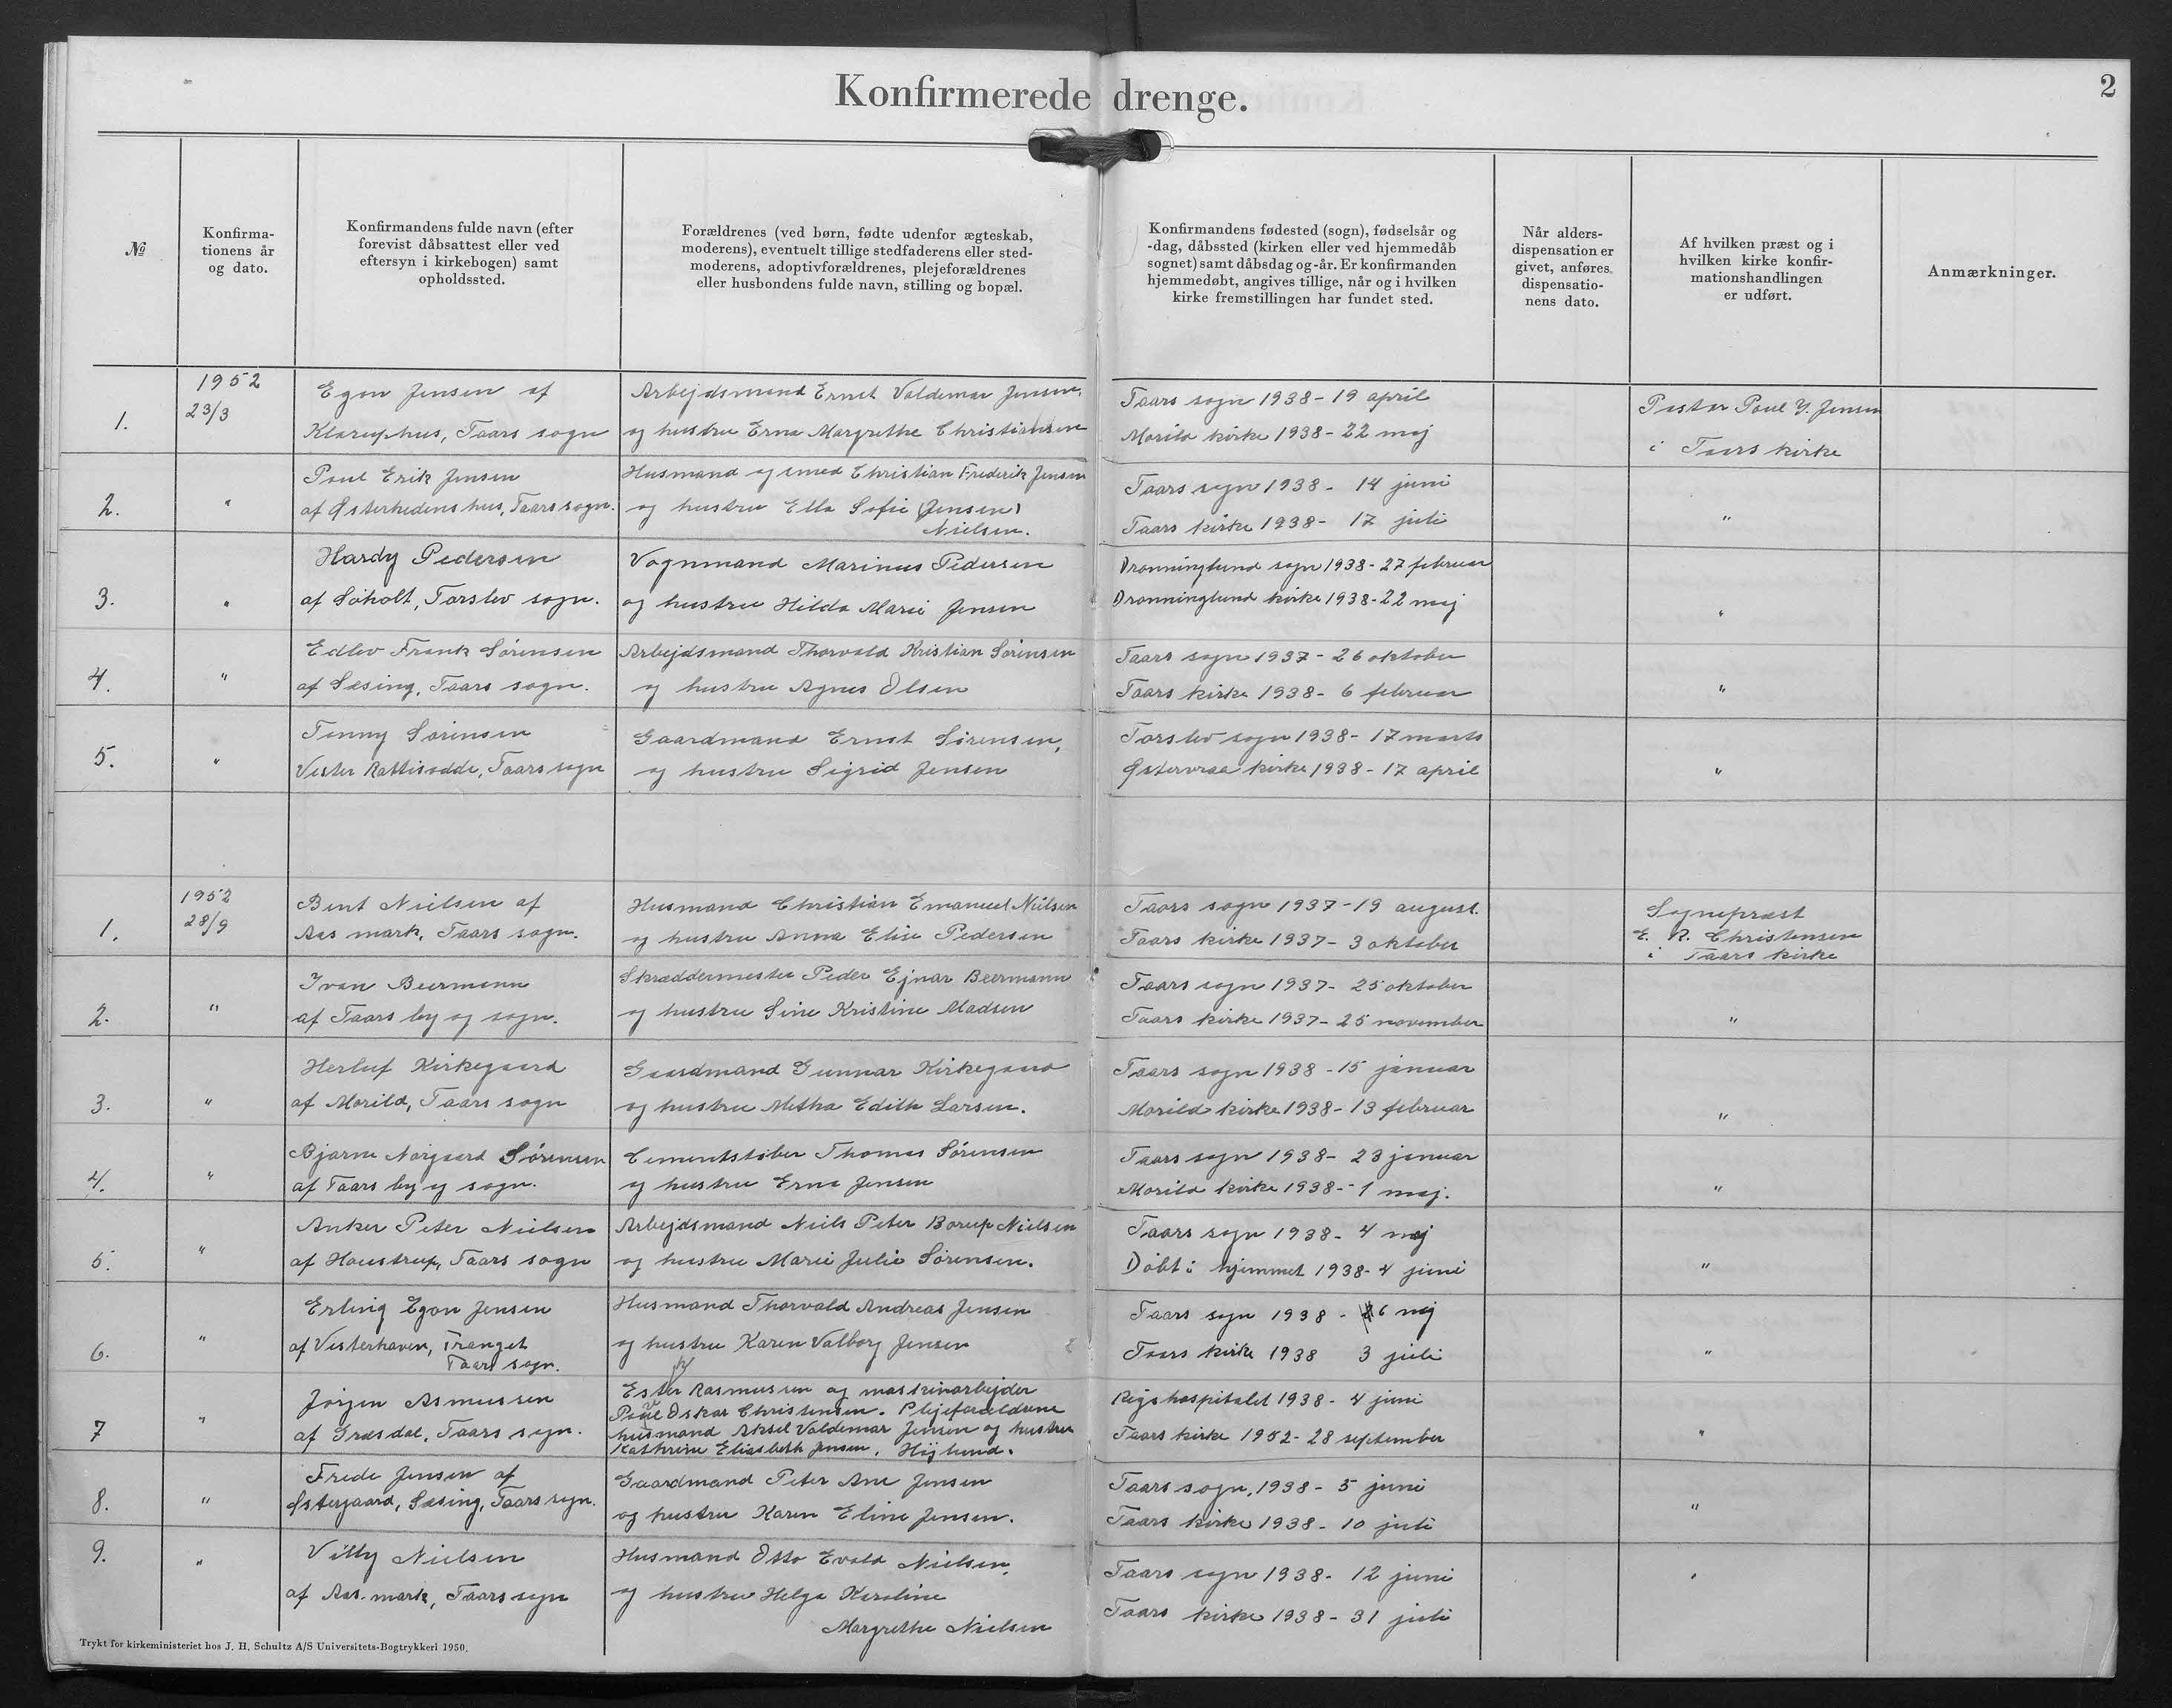 Konfirmerede drenge.
2
№
Konfirma-
tionens år
og dato.
Konfirmandens fulde navn (efter
forevist dåbsattest eller ved
eftersyn i kirkebogen) samt
opholdssted.
Forældrenes (ved børn, fødte udenfor ægteskab,
moderens), eventuelt tillige stedfaderens eller sted-
moderens, adoptivforældrenes, plejeforældrenes
eller husbondens fulde navn, stilling og bopæl.
Konfirmandens fødested (sogn), fødselsår og
-dag, dåbssted (kirken eller ved hjemmedåb
sognet) samt dåbsdag og -år. Er konfirmanden
hjemmedøbt, angives tillige, når og i hvilken
kirke fremstillingen har fundet sted.
Når alders-
dispensation er
givet, anføres
dispensatio-
nens dato.
Af hvilken præst og i
hvilken kirke konfir-
mationshandlingen
er udført.
Anmærkninger.
1.
1952
23/3
Egon Jensen af
Klaruphus, Taars sogn
Arbejdsmand Ernst Valdemar Jensen,
og hustru Erna Margrethe Christiansen
Taars sogn 1938 - 19 april
Morild kirke 1938 - 22 maj
Pastor Poul Y. Jensen
i Taars kirke
2.
"
Poul Erik Jensen
af Østerhedens hus, Taars sogn.
Husmand og smed Christian Frederik Jensen
og hustru Ella Sofie (Jensen)
Nielsen.
Taars sogn 1938 - 14 juni
Taars kirke 1938 - 17 juli
"
3.
"
Hardy Pedersen
af Søholt, Torslev sogn.
Vognmand Marinus Pedersen
og hustru Hilda Marie Jensen
Dronninglund sogn 1938 - 27 februar
Dronninglund kirke 1938 - 22 maj
"
4.
"
Edlev Frank Sørensen
af Sæsing, Taars sogn.
Arbejdsmand Thorvald Kristian Sørensen
og hustru Agnes Olsen
Taars sogn 1937 - 26 oktober
Taars kirke 1938 - 6 februar
"
5.
"
Tenny Sørensen
Vester Kattisodde, Taars sogn
Gaardmand Ernst Sørensen,
og hustru Sigrid Jensen
Torslev sogn 1938 - 17 marts
Østervraa kirke 1938 - 17 april
"
1.
1952
28/9
Bent Nielsen af
Aas mark, Taars sogn.
Husmand Christian Emanuel Nielsen
og hustru Anna Elise Pedersen
Taars sogn 1937 - 19 august.
Taars kirke 1937 - 3 oktober
Sognepræst
E. R. Christensen
i Taars kirke
2.
"
Ivan Beermann
af Taars by og sogn.
Skræddermester Peder Ejnar Beermann
og hustru Sine Kristine Madsen
Taars sogn 1937 - 25 oktober
Taars kirke 1937 - 25 november
"
3.
"
Herluf Kirkegaard
af Morild, Taars sogn
Gaardmand Gunnar Kirkegaard
og hustru Metha Edith Larsen.
Taars sogn 1938 - 15 januar
Morild kirke 1938 - 13 februar
"
4.
"
Bjarne Nørgaard Sørensen
af Taars by og sogn.
Cementstøber Thomas Sørensen
og hustru Erna Jensen
Taars sogn 1938 - 23 januar
Morild kirke 1938 - 1 maj.
"
5.
"
Anker Peter Nielsen
af Haustrup, Taars sogn
Arbejdsmand Niels Peter Borup Nielsen
og hustru Marie Julie Sørensen.
Taars sogn 1938 - 4 maj
Døbt i hjemmet 1938 - 4 juni
"
6.
"
Erling Egon Jensen
af Vesterhaven, Tranget
Taars sogn.
Husmand Thorvald Andreas Jensen
og hustru Karen Valborg Jensen
Taars sogn 1938 - 26 maj
Taars kirke 1938 3 juli
"
7
"
Jørgen Asmussen
af Græsdal, Taars sogn.
Ester Rasmussen og maskinarbejder
Poul Oskar Christensen. Plejeforældrene
husmand Aksel Valdemar Jensen og hustru
Kathrine Eliasbeth Jensen, Højlund.
Rigshospitalet 1938 - 4 juni
Taars kirke 1952 - 28 september
"
8.
"
Frede Jensen af
Østergaard, Sæsing, Taars sogn.
Gaardmand Peter Ane Jensen
og hustru Karen Eline Jensen.
Taars sogn, 1938 - 5 juni
Taars kirke 1938 - 10 juli
"
9.
"
Villy Nielsen
af Aas mark, Taars sogn
Husmand Otto Evald Nielsen,
og hustru Helga Karoline
Margrethe Nielsen
Taars sogn 1938 - 12 juni
Taars kirke 1938 - 31 juli
"
Trykt for kirkeministeriet hos J. H. Schultz A/S Universitets-Bogtrykkeri 1950.